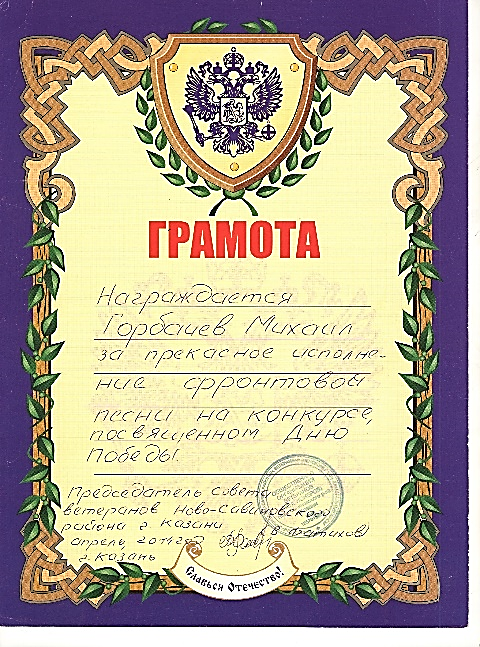 ГРАМОТА
Награждается
Горбачев Михаил
за прекасное исполне-
ние фронтовой
песни на конкурсе,
посвященном Дню
Победы.
Председатель совета
ветеранов Ново-Савиновского
района г. Казани
апрель 2014г.
г. Казань
Славься Отечество!